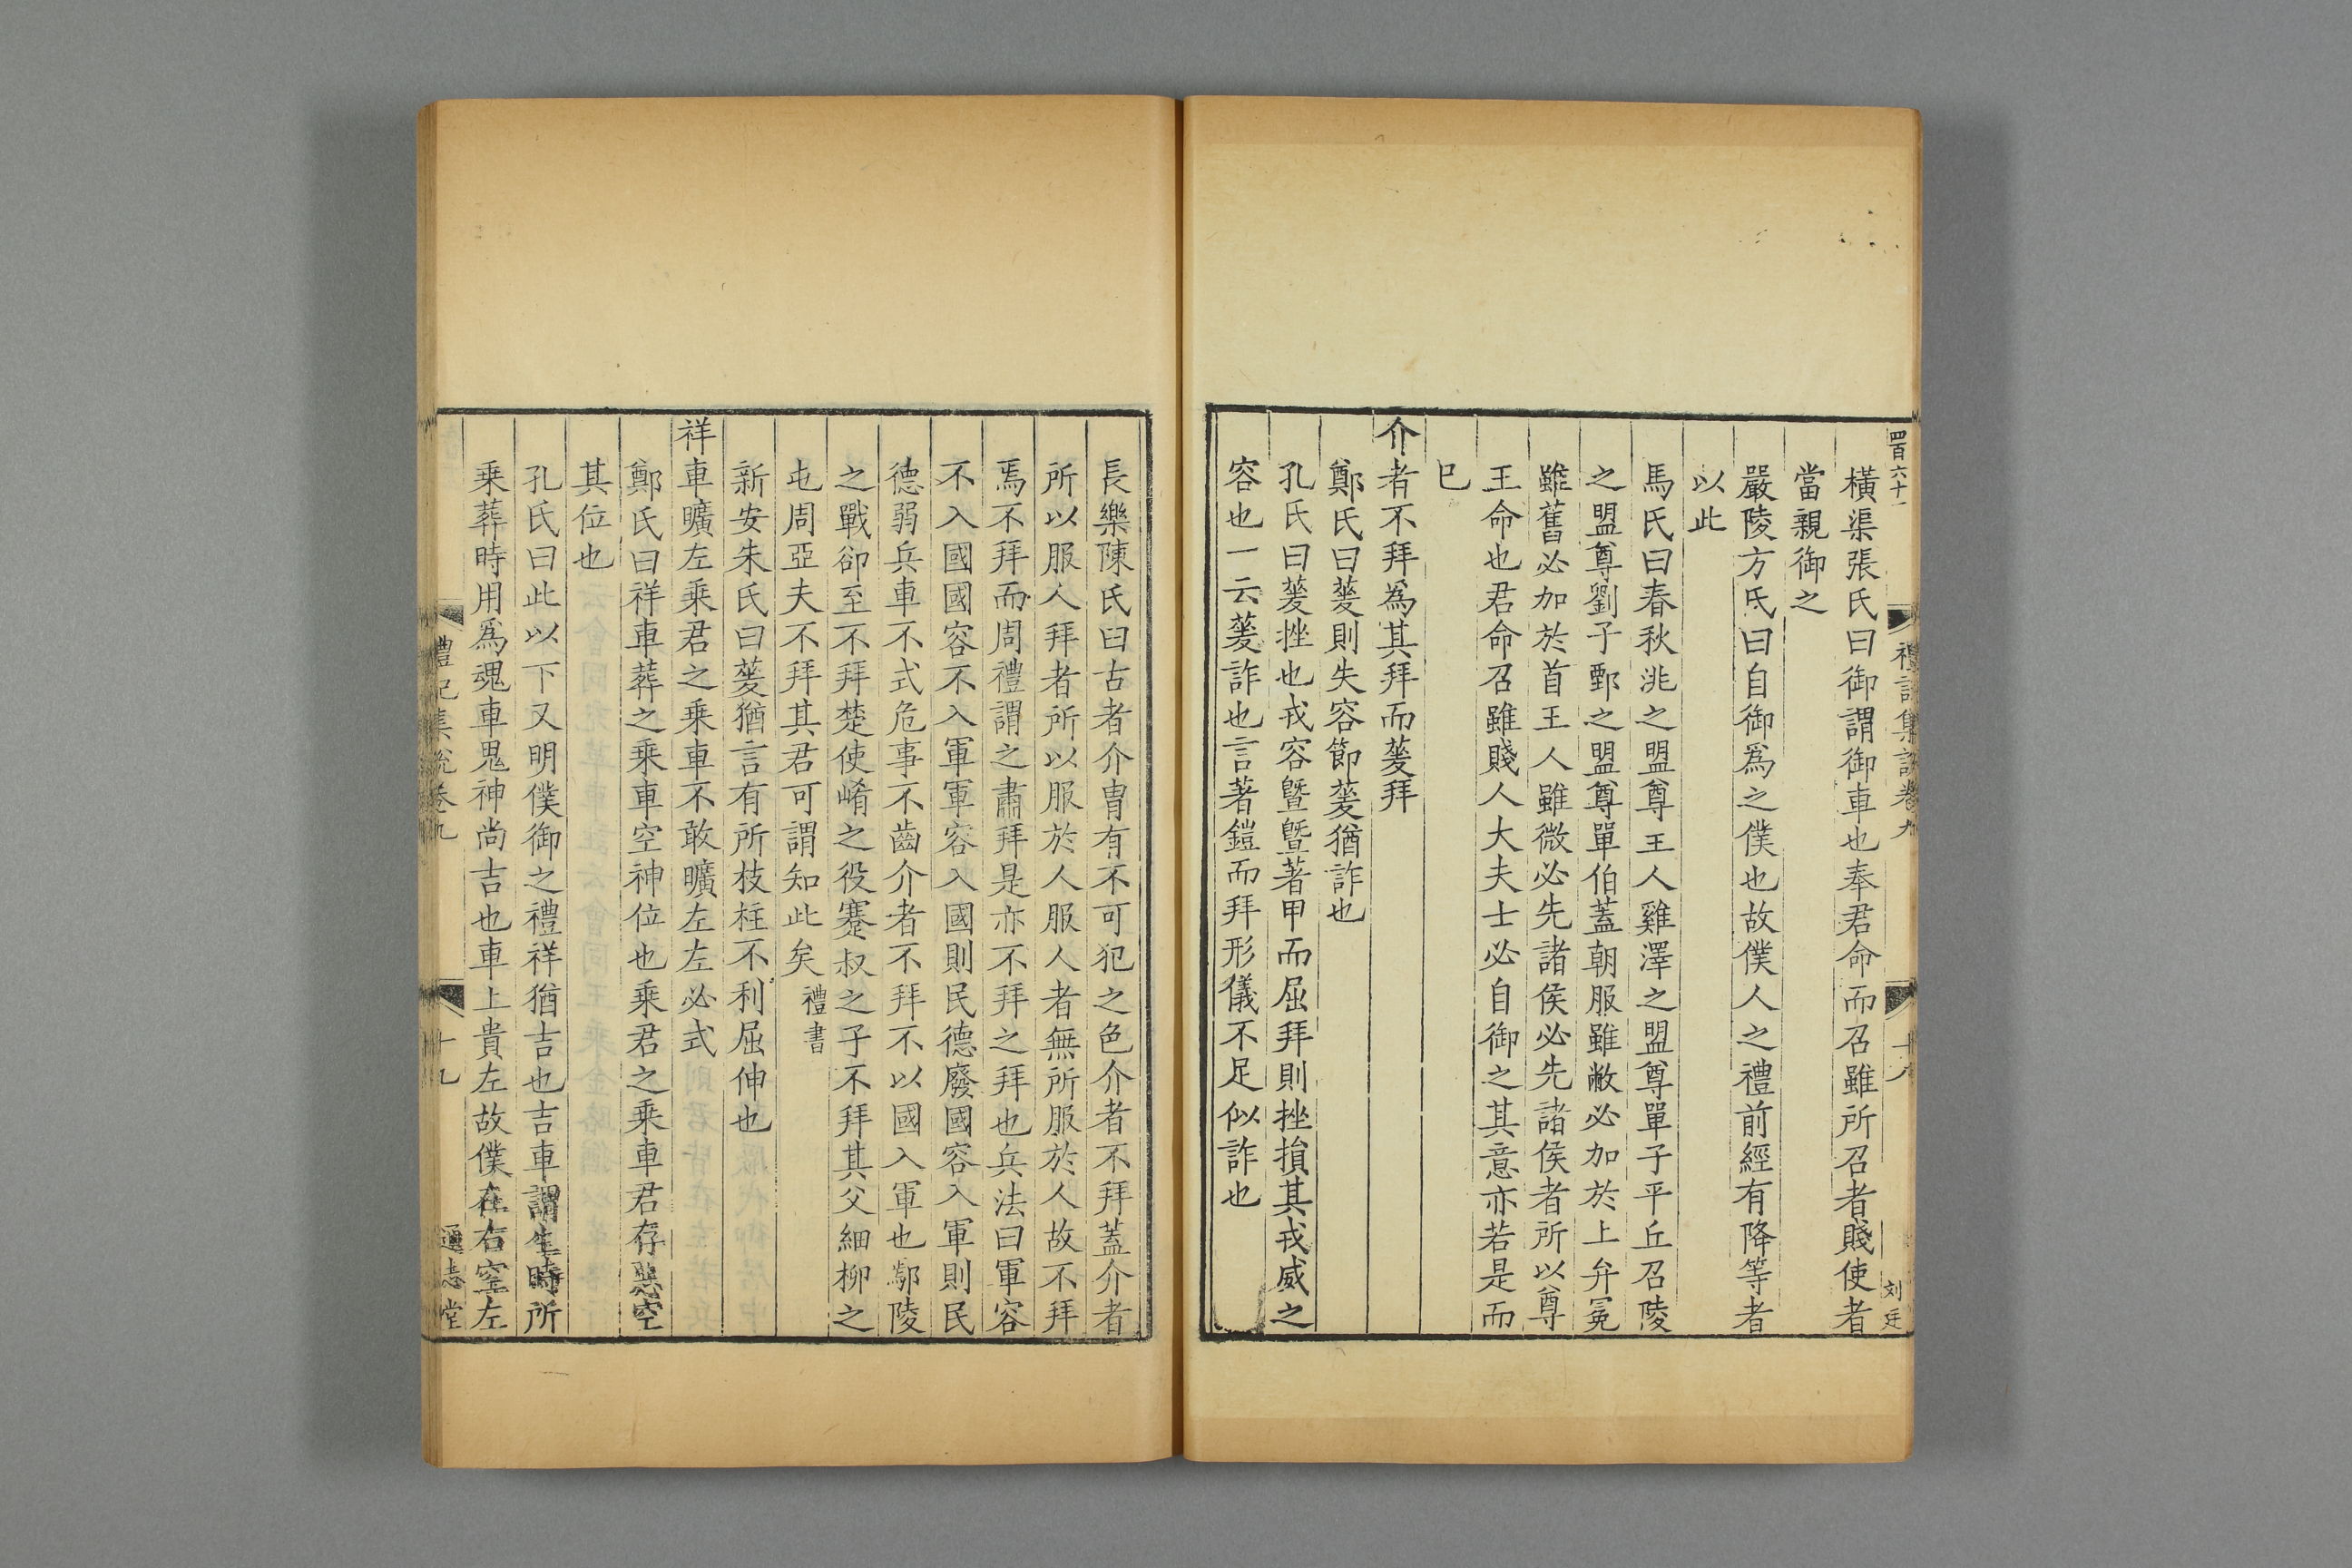 四百六十一
禮記集說卷九
十八
刘廷
橫渠張氏曰御謂御車也奉君命而召雖所召者賤使者
當親御之
嚴陵方氏曰自御爲之僕也故僕人之禮前經有降等者
以此
馬氏曰春秋洮之盟尊王人雞澤之盟尊單子平丘召陵
之盟尊劉子鄄之盟尊單伯蓋朝服雖敝必加於上弁冕
雖舊必加於首王人雖微必先諸侯必先諸侯者所以尊
王命也君命召雖賤人大夫士必自御之其意亦若是而
巳
介者不拜爲其拜而蓌拜
鄭氏曰蓌則失容節蓌猶詐也
孔氏曰蓌挫也戎容曁曁著甲而屈拜則挫損其戎威之
容也一云蓌詐也言著鎧而拜形儀不足似詐也
長樂陳氏曰古者介胄有不可犯之色介者不拜蓋介者
所以服人拜者所以服於人服人者無所服於人故不拜
焉不拜而周禮謂之肅拜是亦不拜之拜也兵法曰軍容
不入國國容不入軍軍容入國則民德廢國容入軍則民
德弱兵車不式危事不齒介者不拜不以國入軍也鄢陵
之戰卻至不拜楚使崤之役蹇叔之子不拜其父細柳之
屯周亞夫不拜其君可謂知此矣禮書
新安朱氏曰蓌猶言有所枝柱不利屈伸也
祥車曠左乘君之乘車不敢曠左左必式
鄭氏曰祥車葬之乘車空神位也乘君之乘車君存惡空
其位也
孔氏曰此以下又明僕御之禮祥猶吉也吉車謂生時所
乘葬時用爲魂車鬼神尚吉也車上貴左故僕在右空左
禮記集說卷九
十九
通志堂